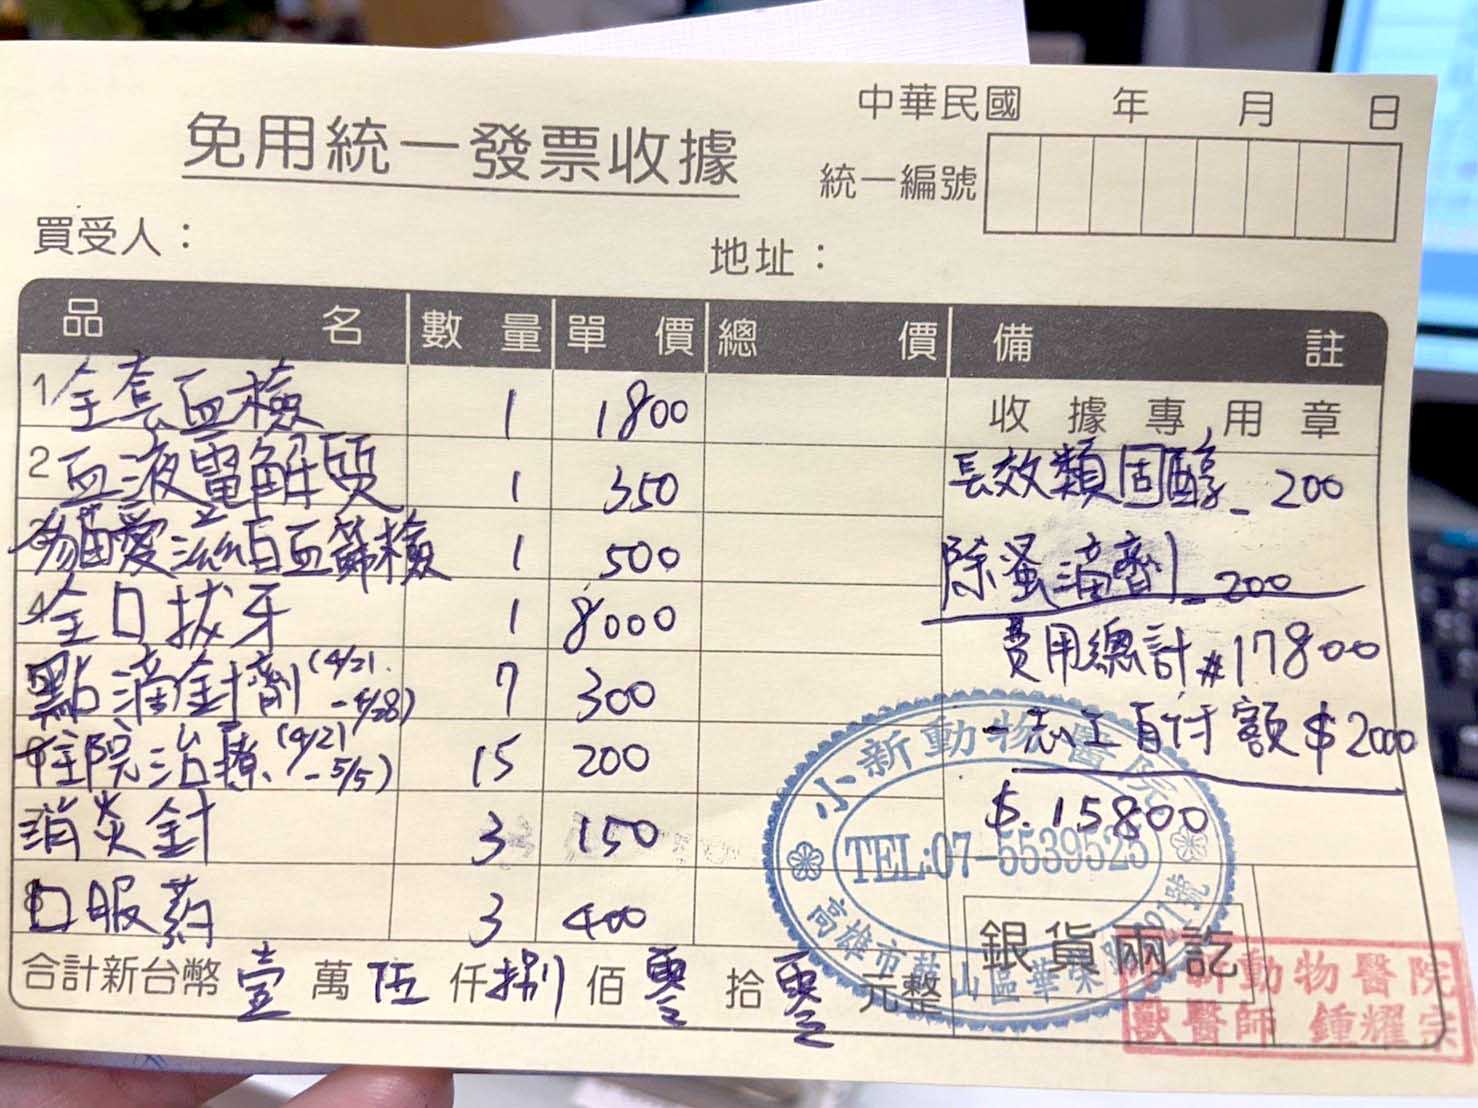 中華民國 年 月 日
免用統一發票收據
統一編號
買受人：
地址：
品名 數量 單價 總價 備註
收據專用章
1 全套血檢 1 1800
2 血液電解質 1 350
3 貓愛滋白血篩檢 1 500
4 全口拔牙 1 8000
點滴針劑(4/21.-4/28) 7 300
住院治療(4/21-5/5) 15 200
消炎針 3 150
口服药 3 400
長效類固醇_200
除蚤滴劑_200
費用總計#17800
-志工自付額$2000
$.15800
小新動物醫院
TEL:07-5539525
高雄市鼓山區華榮路 號
銀貨兩訖
合計新台幣 壹 萬 伍 仟 捌 佰 零 拾 零 元整
小新動物醫院
獸醫師 鍾耀宗